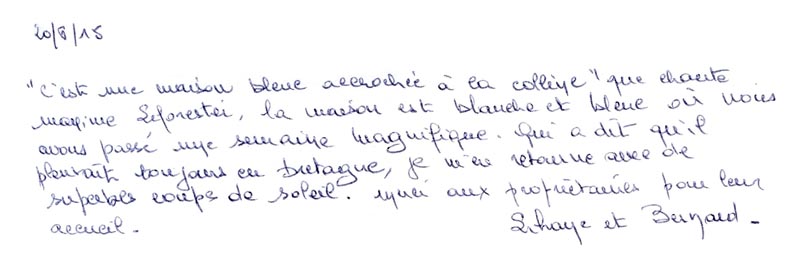 20/8/15
"C'est une maison bleue accrochée à la colline" que chante
maxime Leforestier, la maison est blanche et bleue où nous
avons passé une semaine magnifique. Qui a dit qu'il
pleuvait toujours en Bretagne, je m'en retourne avec de
superbes coups de soleil. merci aux propriétaires pour leur
accueil.
et Bernard -